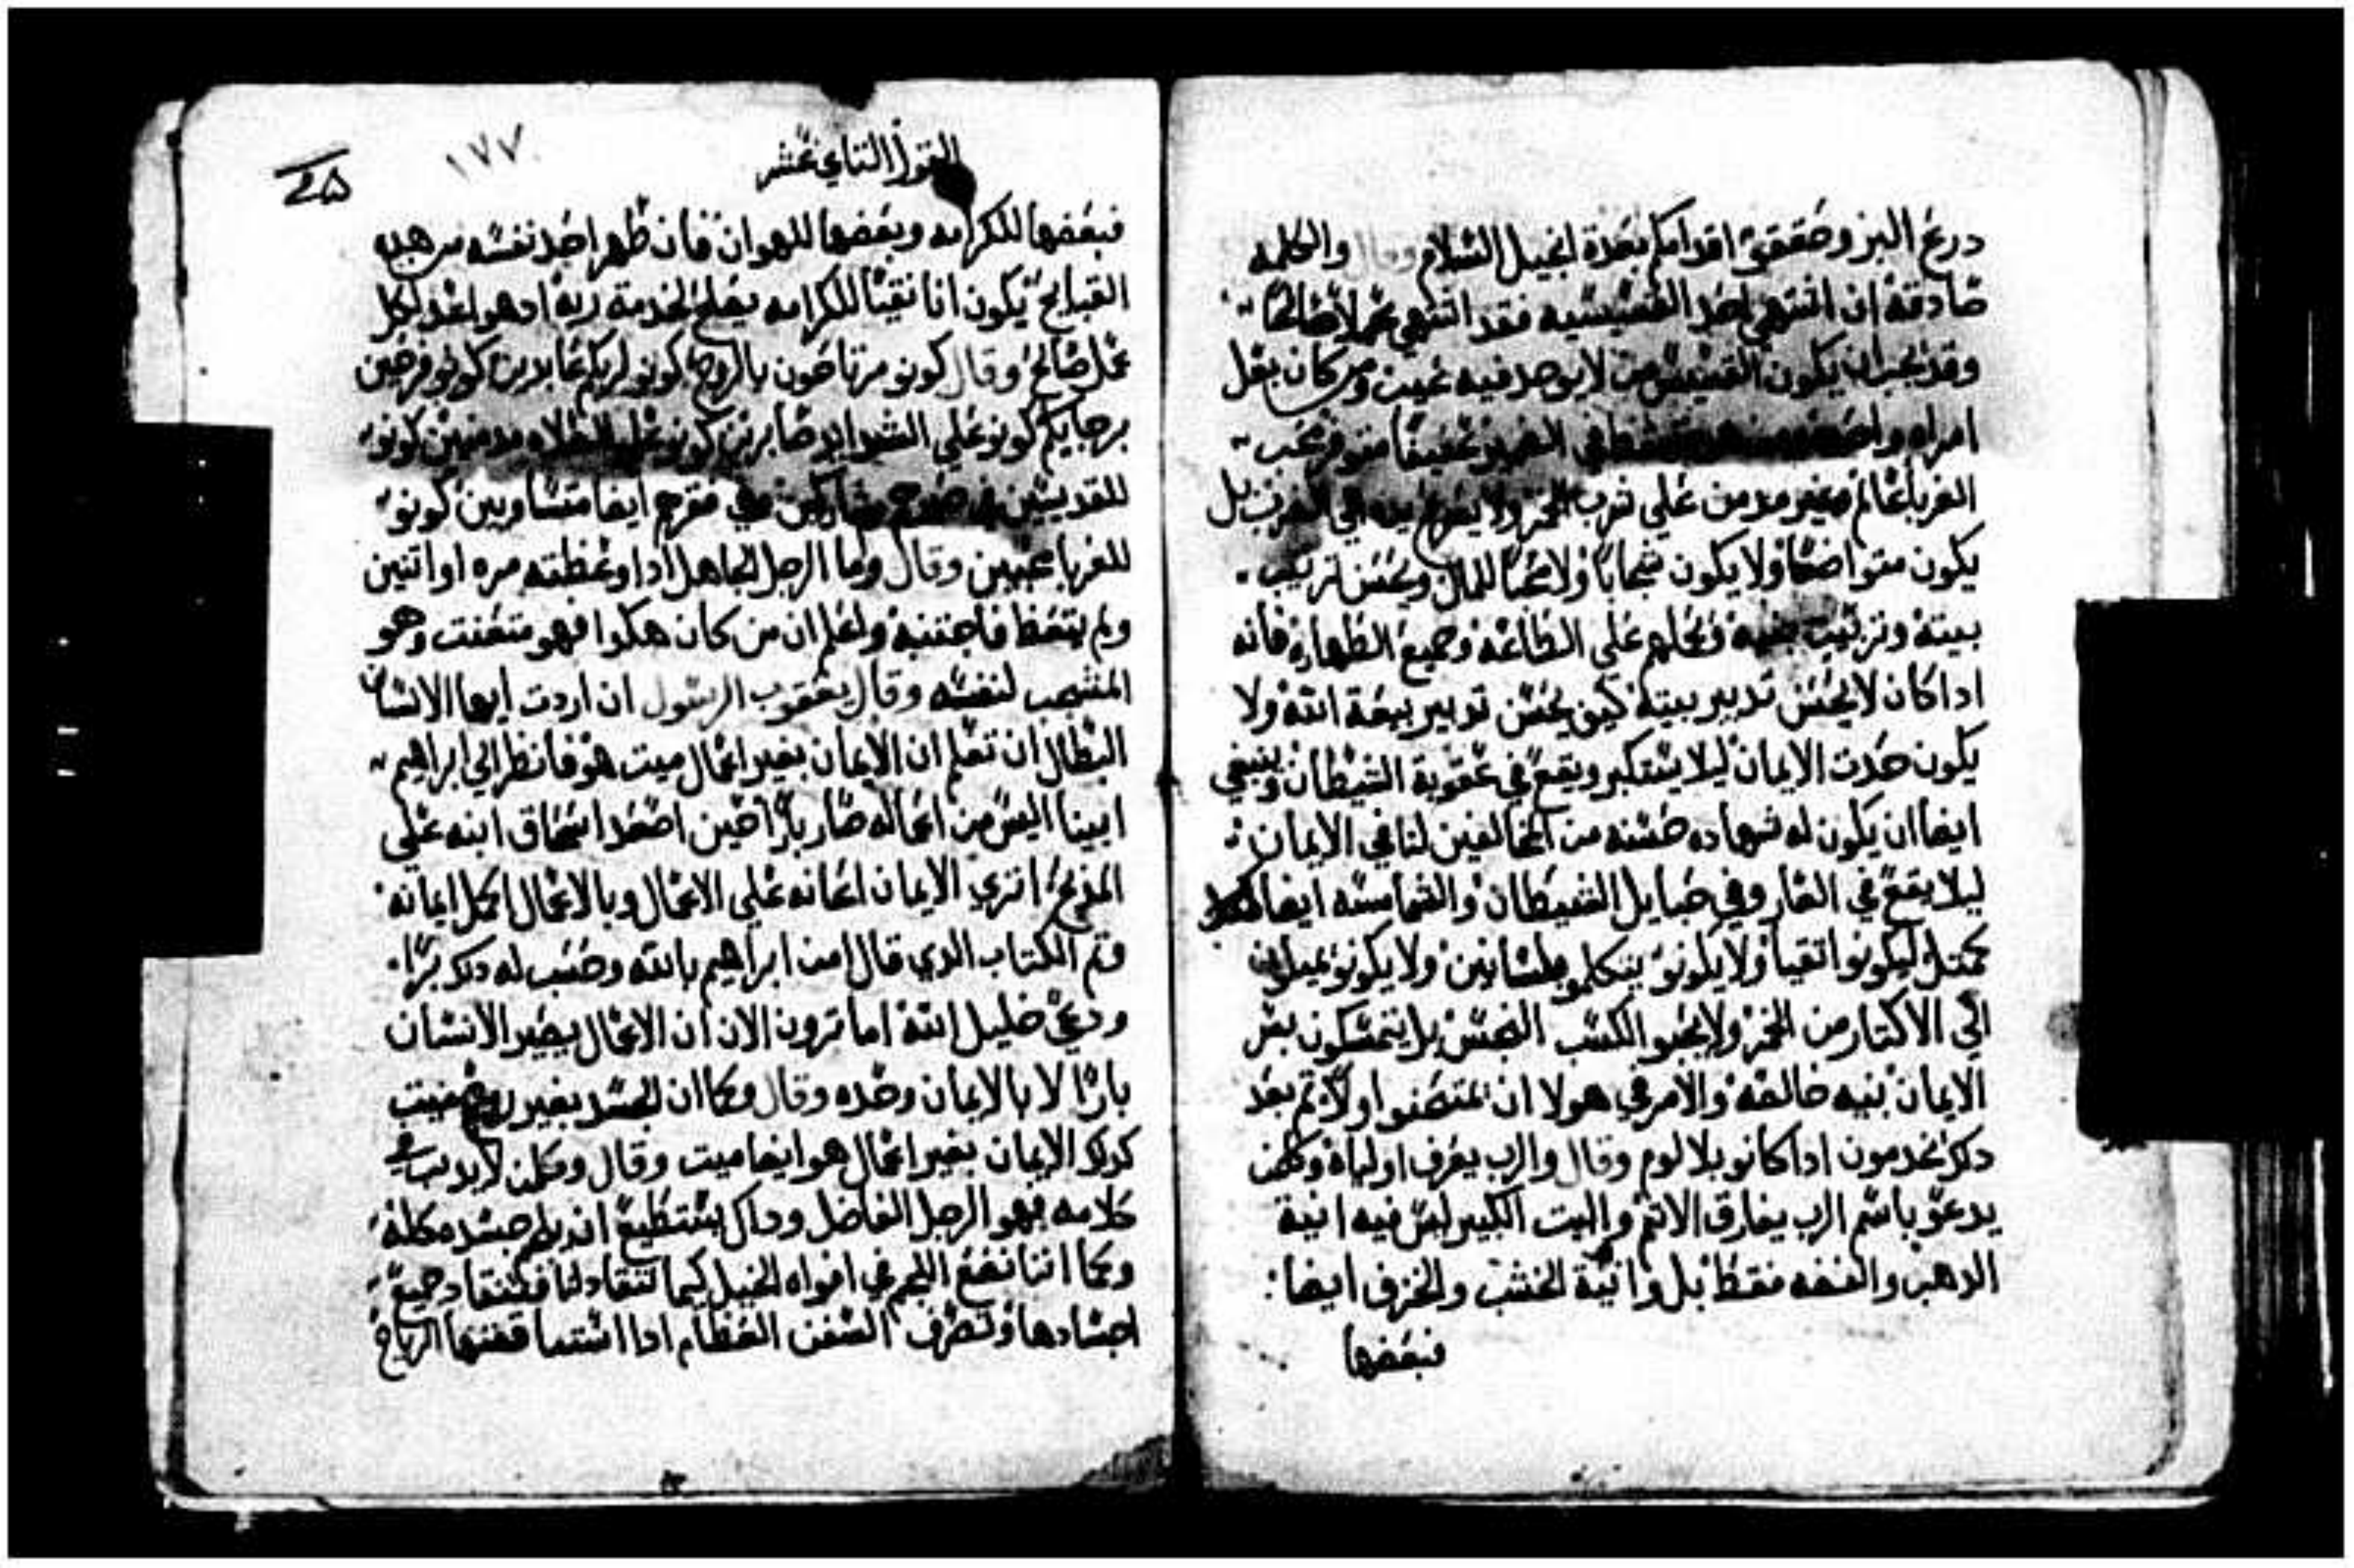 درع البر وحققو اقدامكم بعدة انجيل السلام وقال والكلمه
صادقه ان اشتهي احد القسيسيه فقد اشتهي عملا صالحا
وقد يجب ان يكون القسيس من لا يوجد فيه عيب ومن كان بعل
امراه واحده عفيفا متوقر محب
الغربا عالم وغير مدمن علي شرب الخمر ولا يسرع يده الي الضرب بل
يكون متواضعا ولا يكون شجابا ولا محبا للمال ويحسن تربيت
بيته وتربيت بنيه ويحلهم علي الطاعه وجميع الطهاره فانه
اداكان لا يحسن تدبير بيته كيف يحسن تدبير بيعة الله ولا
يكون حدت الايمان ليلا يستكبر ويقع في عقوبة الشيطان وينبغي
ايضا ان يكون له شهاده حسنه من المخالفين لنا في الايمان
ليلا يقع في العار وفي حبايل الشيطان والشمامسه ايضا
كمتل ليكونو اتقيا ولا يكونو يتكلمو بلسانين ولا يكونو يميلون
الي الاكتار من الخمر ولا يحبو الكسب النجس بل يتمسكون بسر
الايمان بنيه خالصه والامر في هولا ان يمتحنوا اولا تم بعد
دلك يخدمون اداكانو بلا لوم وقال والرب يعرف اولياه وكلمن
يدعو باسم الرب يفارق الاتم والبيت الكبير ليس فيه انية
الدهب والفضه فقط بل وانية الخشب والخزف ايضا
فبعضها
القول التاني عشر
١٧٧
فبعضها للكرامه وبعضها للهوان فان طهر احد نفسه من هده
القبايح يكون انا نقيا للكرامه يصلح لخدمة ربه ادهو اعد لكل
عمل صالح وقال كونو مرتاحون بالروح كونو لربكم عابدين كونو فرحين
برجايكم كونو علي الشدايد صابرين كونو علي الصلاه مدمنين كونو
للقديسين في مشاركين ايضا متساويين كونو
للغربا محبين وقال واما الرجل الجاهل ادا وعظته مره او اتنين
ولم يتعظ فاجتنبه واعلم ان من كان هكدا فهو متعنت وهو
المشجب لنفسه وقال يعقوب الرسول ان اردت ايها الانسان
البطال ان تعلم ان الايمان بغير اعمال ميت هو فانظر الي ابراهيم
ابينا اليس من اعماله صار بارا حين اصعد اسحاق ابنه علي
المدبح اتري الايمان اعانه علي الاعمال وبالاعمال اكمل ايمانه
وتم الكتاب الدي قال امن ابراهيم بالله وحسب له دلك برا
ودعي خليل الله اما ترون الان ان الاعمال يصير الانسان
بارا لا بالايمان وحده وقال وكما ان الجسد بغير روح ميت
كدلك الايمان بغير اعمال هو ايضا ميت وقال وكلمن لا يدنب في
كلامه فهو الرجل الفاضل وداك يستطيع ان يلجم جسده كله
وكما اننا نضع اللجم في افواه الخيل كيما تنقاد لنا فتنقاد جميع
اجسادها وتصرف السفن العظام ادا اشتد الرياح